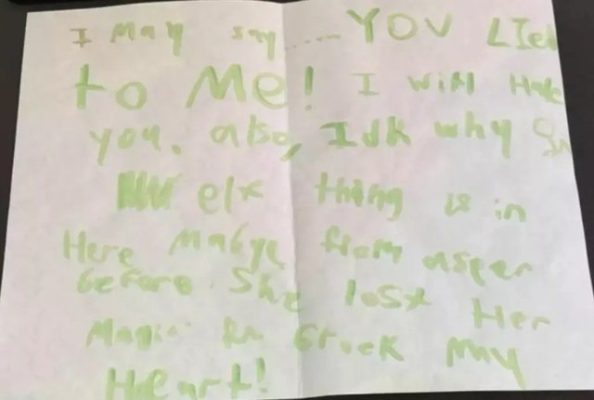 I May say..... YOU LIed
to Me! I will Hate
you. also, Idk why
elx thing is in
Here Mabye from asper
before She lost Her
Magic
Heart!